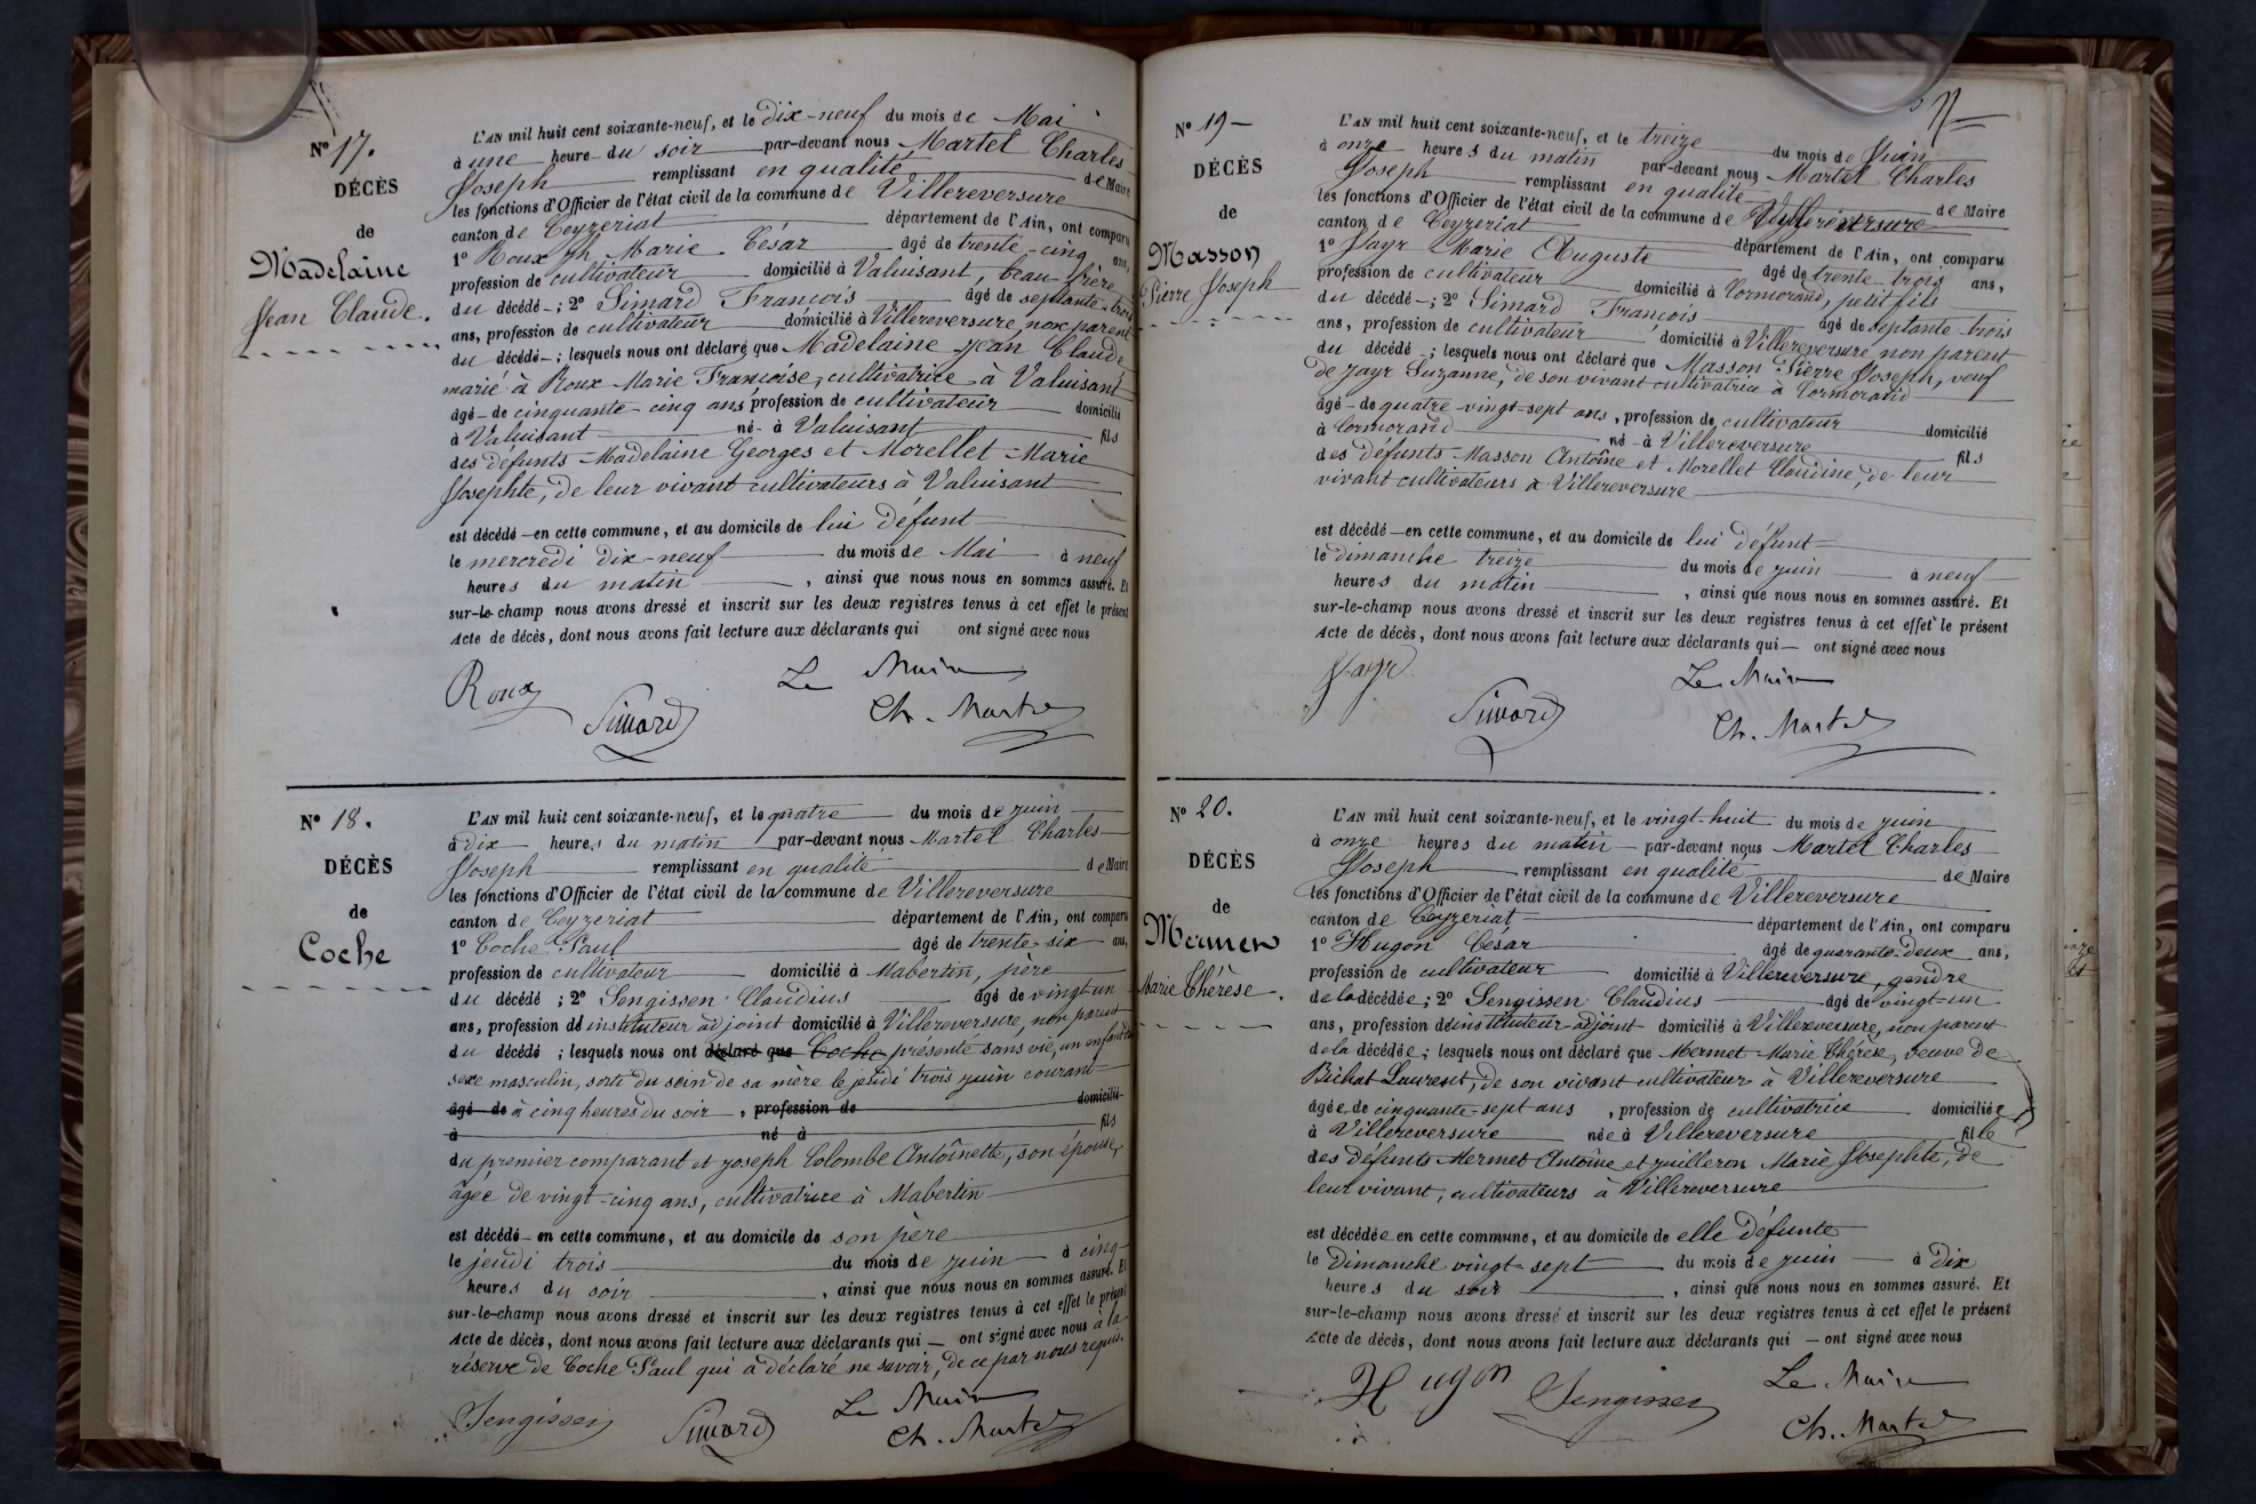 Nº 17.
DÉCÈS
de
Madelaine
Jean Claude.
L'AN mil huit cent soixante-neuf, et le dix-neuf du mois de Mai
à une heure du soir par-devant nous Martel Charles
Joseph remplissant en qualité de Maire
les fonctions d'Officier de l'état civil de la commune de Villereversure
canton de Ceyzeriat département de l'Ain, ont comparu
1º Roux Jh Marie César âgé de trente-cinq ans,
profession de cultivateur domicilié à Valuisant, beau-frère
du décédé ; 2º Simard François âgé de septante-trois
ans, profession de cultivateur domicilié à Villereversure, non parent
du décédé ; lesquels nous ont déclaré que Madelaine Jean Claude
marié à Roux Marie Françoise, cultivatrice à Valuisant
âgé de cinquante-cinq ans profession de cultivateur domicilié
à Valuisant né à Valuisant fils
des défunts Madelaine Georges et Morellet Marie
Josephte, de leur vivant cultivateurs à Valuisant
est décédé en cette commune, et au domicile de lui défunt
le mercredi dix-neuf du mois de Mai à neuf
heures du matin , ainsi que nous nous en sommes assuré. Et
sur-le-champ nous avons dressé et inscrit sur les deux registres tenus à cet effet le présent
Acte de décès, dont nous avons fait lecture aux déclarants qui ont signé avec nous
Roux
Simard
Le Maire
Ch. Martel
Nº 18.
DÉCÈS
de
Coche
L'AN mil huit cent soixante-neuf, et le quatre du mois de juin
à dix heures du matin par-devant nous Martel Charles
Joseph remplissant en qualité de Maire
les fonctions d'Officier de l'état civil de la commune de Villereversure
canton de Ceyzeriat département de l'Ain, ont comparu
1º Coche Paul âgé de trente-six ans,
profession de cultivateur domicilié à Mabertin, père
du décédé ; 2º Sengissen Claudius âgé de vingt-un
ans, profession de instituteur adjoint domicilié à Villereversure, non parent
du décédé ; lesquels nous ont déclaré que Coche présenté sans vie, un enfant du
sexe masculin, sorti du sein de sa mère le jeudi trois juin courant
âgé de à cinq heures du soir , profession de domicilié
à né à fils
du premier comparant et Joseph Colombe Antoinette, son épouse,
âgée de vingt-cinq ans, cultivatrice à Mabertin
est décédé en cette commune, et au domicile de son père
le jeudi trois du mois de juin à cinq
heures du soir , ainsi que nous nous en sommes assuré. Et
sur-le-champ nous avons dressé et inscrit sur les deux registres tenus à cet effet le présent
Acte de décès, dont nous avons fait lecture aux déclarants qui ont signé avec nous à la
réserve de Coche Paul qui a déclaré ne savoir, de ce par nous requis.
Sengissen
Simard
Le Maire
Ch. Martel
Nº 19
DÉCÈS
de
Masson
Pierre Joseph
L'AN mil huit cent soixante-neuf, et le treize du mois de Juin
à onze heures du matin par-devant nous Martel Charles
Joseph remplissant en qualité de Maire
les fonctions d'Officier de l'état civil de la commune de Villereversure
canton de Ceyzeriat département de l'Ain, ont comparu
1º Jayr Marie Auguste âgé de trente-trois ans,
profession de cultivateur domicilié à Cormorand, petit fils
du décédé ; 2º Simard François âgé de septante-trois
ans, profession de cultivateur domicilié à Villereversure non parent
du décédé ; lesquels nous ont déclaré que Masson Pierre Joseph, veuf
de Jayr Suzanne, de son vivant cultivatrice à Cormorand
âgé de quatre-vingt-sept ans , profession de cultivateur domicilié
à Cormorand né à Villereversure fils
des défunts Masson Antoine et Morellet Claudine, de leur
vivant cultivateurs à Villereversure
est décédé en cette commune, et au domicile de lui défunt
le dimanche treize du mois de juin à neuf
heures du matin , ainsi que nous nous en sommes assuré. Et
sur-le-champ nous avons dressé et inscrit sur les deux registres tenus à cet effet le présent
Acte de décès, dont nous avons fait lecture aux déclarants qui ont signé avec nous
Jayr
Simard
Le Maire
Ch. Martel
Nº 20.
DÉCÈS
de
Mermet
Marie Thérèse.
L'AN mil huit cent soixante-neuf, et le vingt-huit du mois de juin
à onze heures du matin par-devant nous Martel Charles
Joseph remplissant en qualité de Maire
les fonctions d'Officier de l'état civil de la commune de Villereversure
canton de Ceyzeriat département de l'Ain, ont comparu
1º Hugon César âgé de quarante-deux ans,
profession de cultivateur domicilié à Villereversure, gendre
de la décédée ; 2º Sengissen Claudius âgé de vingt-un
ans, profession de instituteur-adjoint domicilié à Villereversure, non parent
de la décédée ; lesquels nous ont déclaré que Mermet Marie Thérèse, veuve de
Bichat Laurent, de son vivant cultivateur à Villereversure
âgée de cinquante-sept ans , profession de cultivatrice domiciliée
à Villereversure née à Villereversure fille
des défunts Mermet Antoine et Juilleron Marie Josephte, de
leur vivant, cultivateurs à Villereversure
est décédée en cette commune, et au domicile de elle défunte
le Dimanche vingt-sept du mois de juin à dix
heures du soir , ainsi que nous nous en sommes assuré. Et
sur-le-champ nous avons dressé et inscrit sur les deux registres tenus à cet effet le présent
Acte de décès, dont nous avons fait lecture aux déclarants qui ont signé avec nous
Hugon
Sengissen
Le Maire
Ch. Martel